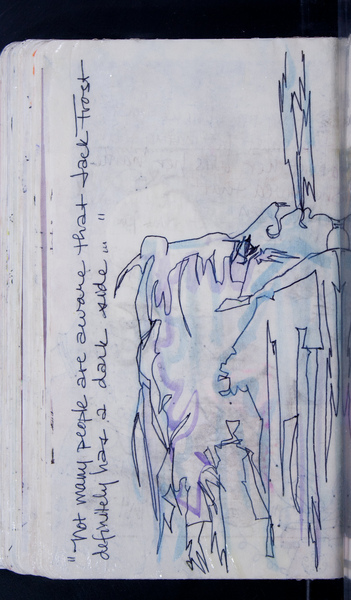 "not many people are aware that Jack Frost
definitely has a dark side ... "